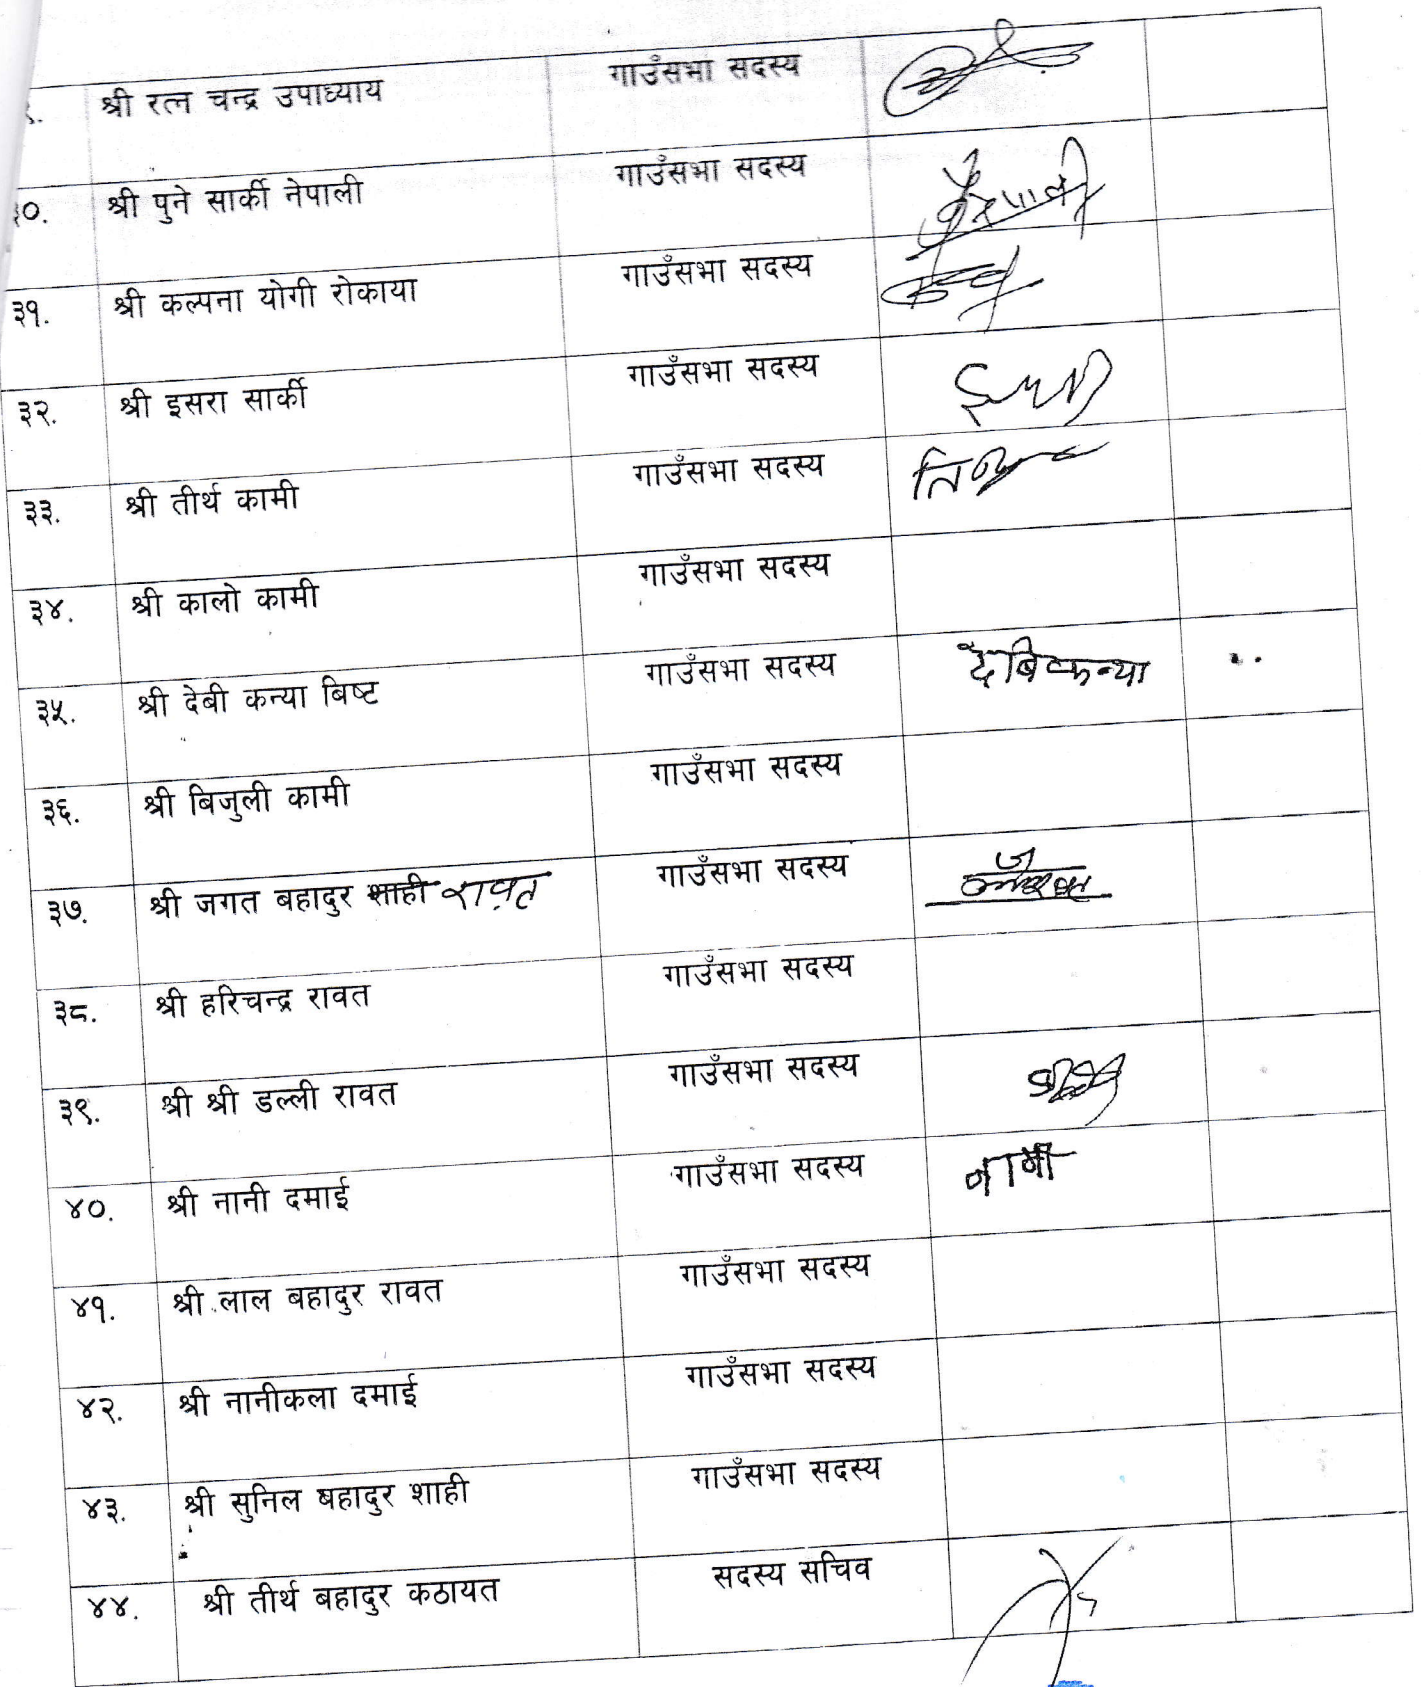 ९. श्री रत्न चन्द्र उपाध्याय गाउँसभा सदस्य
३०. श्री पुने सार्की नेपाली गाउँसभा सदस्य
३१. श्री कल्पना योगी रोकाया गाउँसभा सदस्य
३२. श्री इसरा सार्की गाउँसभा सदस्य
३३. श्री तीर्थ कामी गाउँसभा सदस्य
३४. श्री कालो कामी गाउँसभा सदस्य
३५. श्री देबी कन्या बिष्ट गाउँसभा सदस्य देबिकन्या
३६. श्री बिजुली कामी गाउँसभा सदस्य
३७. श्री जगत बहादुर शाही रावत गाउँसभा सदस्य
३८. श्री हरिचन्द्र रावत गाउँसभा सदस्य
३९. श्री श्री डल्ली रावत गाउँसभा सदस्य
४०. श्री नानी दमाई गाउँसभा सदस्य नानी
४१. श्री लाल बहादुर रावत गाउँसभा सदस्य
४२. श्री नानीकला दमाई गाउँसभा सदस्य
४३. श्री सुनिल बहादुर शाही गाउँसभा सदस्य
४४. श्री तीर्थ बहादुर कठायत सदस्य सचिव